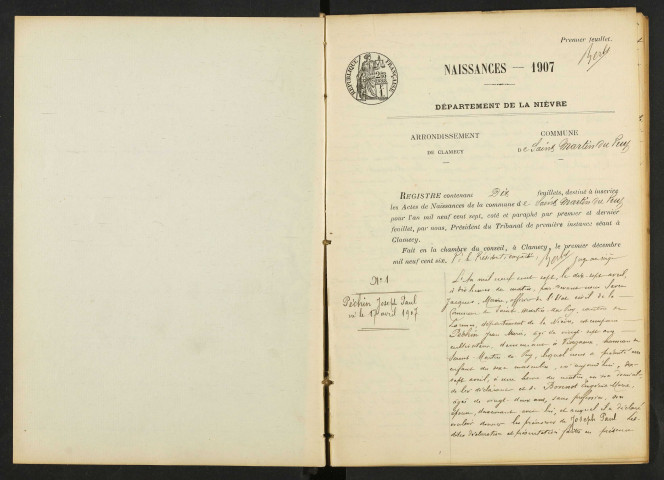 Premier feuillet.
NAISSANCES — 1907
RÉPUBLIQUE FRANÇAISE
DÉPARTEMENT DE LA NIÈVRE
ARRONDISSEMENT
DE CLAMECY
COMMUNE
de Saint Martin du Puy
REGISTRE contenant Dix feuillets, destiné à inscrire
les Actes de Naissances de la commune de Saint Martin du Puy
pour l'an mil neuf cent sept, coté et paraphé par premier et dernier
feuillet, par nous, Président du Tribunal de première instance séant à
Clamecy.
Fait en la chambre du conseil, à Clamecy, le premier décembre
mil neuf cent six. P. le Président empêché
N° 1
Péchin Joseph Paul
né le 17 avril 1907
L'an mil neuf cent sept, le dix sept avril,
à dix heures du matin, par devant nous
Jacques, Maire, officier de l'Etat civil de la
Commune de Saint Martin du Puy, canton de
Lormes, département de la Nièvre, est comparu
Péchin Jean Marie, âgé de vingt sept ans
cultivateur, demeurant à commune de
Saint Martin du Puy, lequel nous a présenté un
enfant du sexe masculin, né aujourd'hui, dix
sept avril, à une heure du matin, en son domicile
de lui déclarant et de Bonnot Eugénie
âgée de vingt deux ans, sans profession, son
épouse, demeurant avec lui, et auquel il a déclaré
vouloir donner les prénoms de Joseph Paul Les
dites déclaration et présentation faites en présence